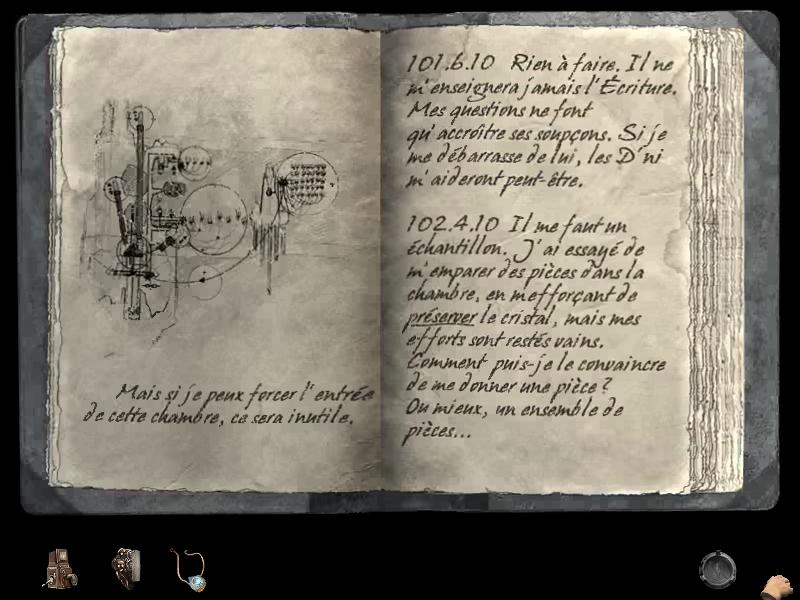 Mais si je peux forcer l'entrée
de cette chambre, ce sera inutile.
101.6.10 Rien à faire. Il ne
m'enseignera jamais l'Écriture.
Mes questions ne font
qu'accroître ses soupçons. Si je
me débarrasse de lui, les D'ni
m'aideront peut-être.
102.4.10 Il me faut un
échantillon. J'ai essayé de
m'emparer des pièces dans la
chambre, en m'efforçant de
préserver le cristal, mais mes
efforts sont restés vains.
Comment puis-je le convaincre
de me donner une pièce ?
Ou mieux, un ensemble de
pièces...